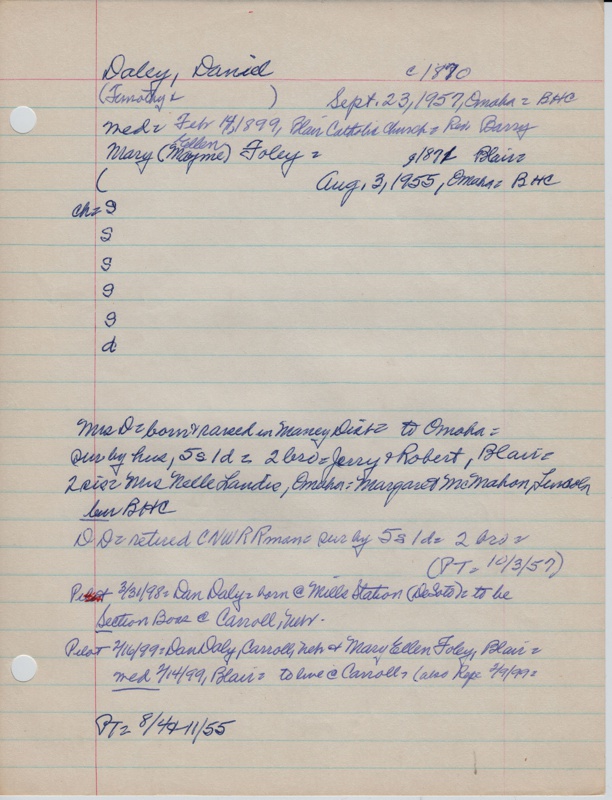 Daley, Daniel c1870
(Timothy = ) Sept. 23, 1957, Omaha = BHC
med = Feb 14, 1899, Blair Catholic Church = Rev Barry
Ellen
Mary (Mayme) Foley = c1871 Blair =
( Aug, 3, 1955, Omaha = BHC
ch = s
s
s
s
s
d
Mrs D = born & raised in Maney Dist = to Omaha =
sur by hus, 5s 1d = 2 bro = Jerry & Robert, Blair =
2 sis = Mrs Nelle Landis, Omaha = Margaret McMahon, Lincoln
bur BHC
DD = retired CNWRRman = sur by 5s 1d = 2 bro =
(PT = 10/3/57)
Pilot 3/31/98 = Dan Daly = born @ Mills Station (DeSoto) = to be
Section Boss @ Carroll, Neb.
Pilot 2/16/99 = Dan Daly, Carroll, Neb & Mary Ellen Foley, Blair =
med 2/14/99, Blair = to live @ Carroll = (also Rep 2/9/99 =
PT = 8/4 & 11/55